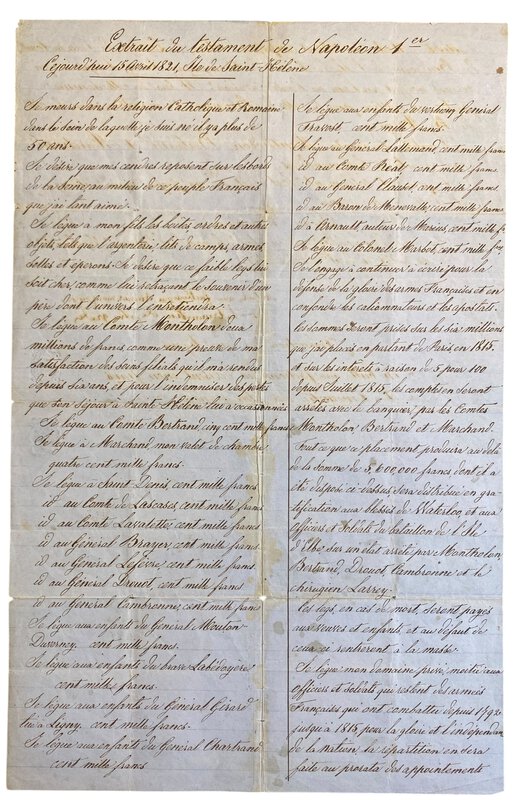 Extrait du testament de Napoléon 1er
Cejourd'hui 15 Avril 1821, Île de Saint Hélène
Je meurs dans la religion Catholique et Romaine
dans le sein de laquelle je suis né il y a plus de
50 ans.
Je désire que mes cendres reposent sur les bords
de la Seine, au milieu de ce peuple Français
que j'ai tant aimé.
Je lègue à mon fils les boites, ordres et autres
objets, tels que l'argenterie, lits de camps, armes
selles et éperons. Je désire que ce faible legs lui
soit cher, comme lui retraçant le souvenir d'un
père dont l'univers l'entretiendra.
Je lègue au Comte Montholon deux
millions de francs comme une preuve de ma
satisfaction des soins filials qu'il m'a rendus
depuis six ans et pour l'indemniser des pertes
que son séjour à Sainte Hélène lui a occasionnés
Je lègue au Comte Bertrand, cinq cent mille francs
Je lègue à Marchand, mon valet de chambre
quatre cent mille francs.
Je lègue à Saint Denis, cent mille francs
id au Comte de Lascases, cent mille francs
id au Comte Lavalette, cent mille francs
id au Général Brayer, cent mille francs
id au Général Lefèvre, cent mille francs.
id au Général Drouot, cent mille francs
id au Général Cambronne, cent mille francs
Je lègue aux enfants du Général Mouton
Duverney, cent mille francs.
Je lègue aux enfants du brave Labédoyère
cent mille francs.
Je lègue aux enfants du Général Girard
tué à Ligny, cent mille francs.
Je lègue aux enfants du Général Chartrand
cent mille francs
Je lègue aux enfants du vertueux Général
Travost, cent mille francs.
Je lègue au Général Lallemand, cent mille francs
id au Comte Réal, cent mille francs
id au Général Clausel, cent mille francs
id au Baron de Menevalle, cent mille francs
id à Arnault, auteur de Marius, cent mille fr
Je lègue au Colonel Marbot, cent mille fr
Je l'engage à continuer à écrire pour la
défense de la gloire des armes Françaises et en
confondre les calomniateurs et les apostats.
les sommes seront prises sur les six millions
que j'ai placés en partant de Paris en 1815
et sur les intérêts à raison de 5 pour 100
depuis Juillet 1815, les comptes en seront
arrêtés avec le banquier par les Comtes
Montholon Bertrand et Marchand.
Tout ce que ce placement produira au delà
de la somme de 5,600,000 francs dont il a
été disposé ci-dessus, sera distribué en gra-
tification aux blessés de Waterloo, et aux
officiers et Soldats du bataillon de l'Ile
d'Elbe, sur un état arrêté par Montholon
Bertrand, Drouot Cambronne et le
chirurgien Larrey.
les legs, en cas de mort, seront payés
aux veuves et enfants, et au défaut de
ceux ci rentreront à la masse
Je lègue mon domaine privé, moitié aux
officiers et soldats qui restent des armées
Françaises qui ont combattu depuis 1792
jusqu'à 1815, pour la gloire et l'indépendance
de la Nation, la répartition en sera
faite au prorata des appointements